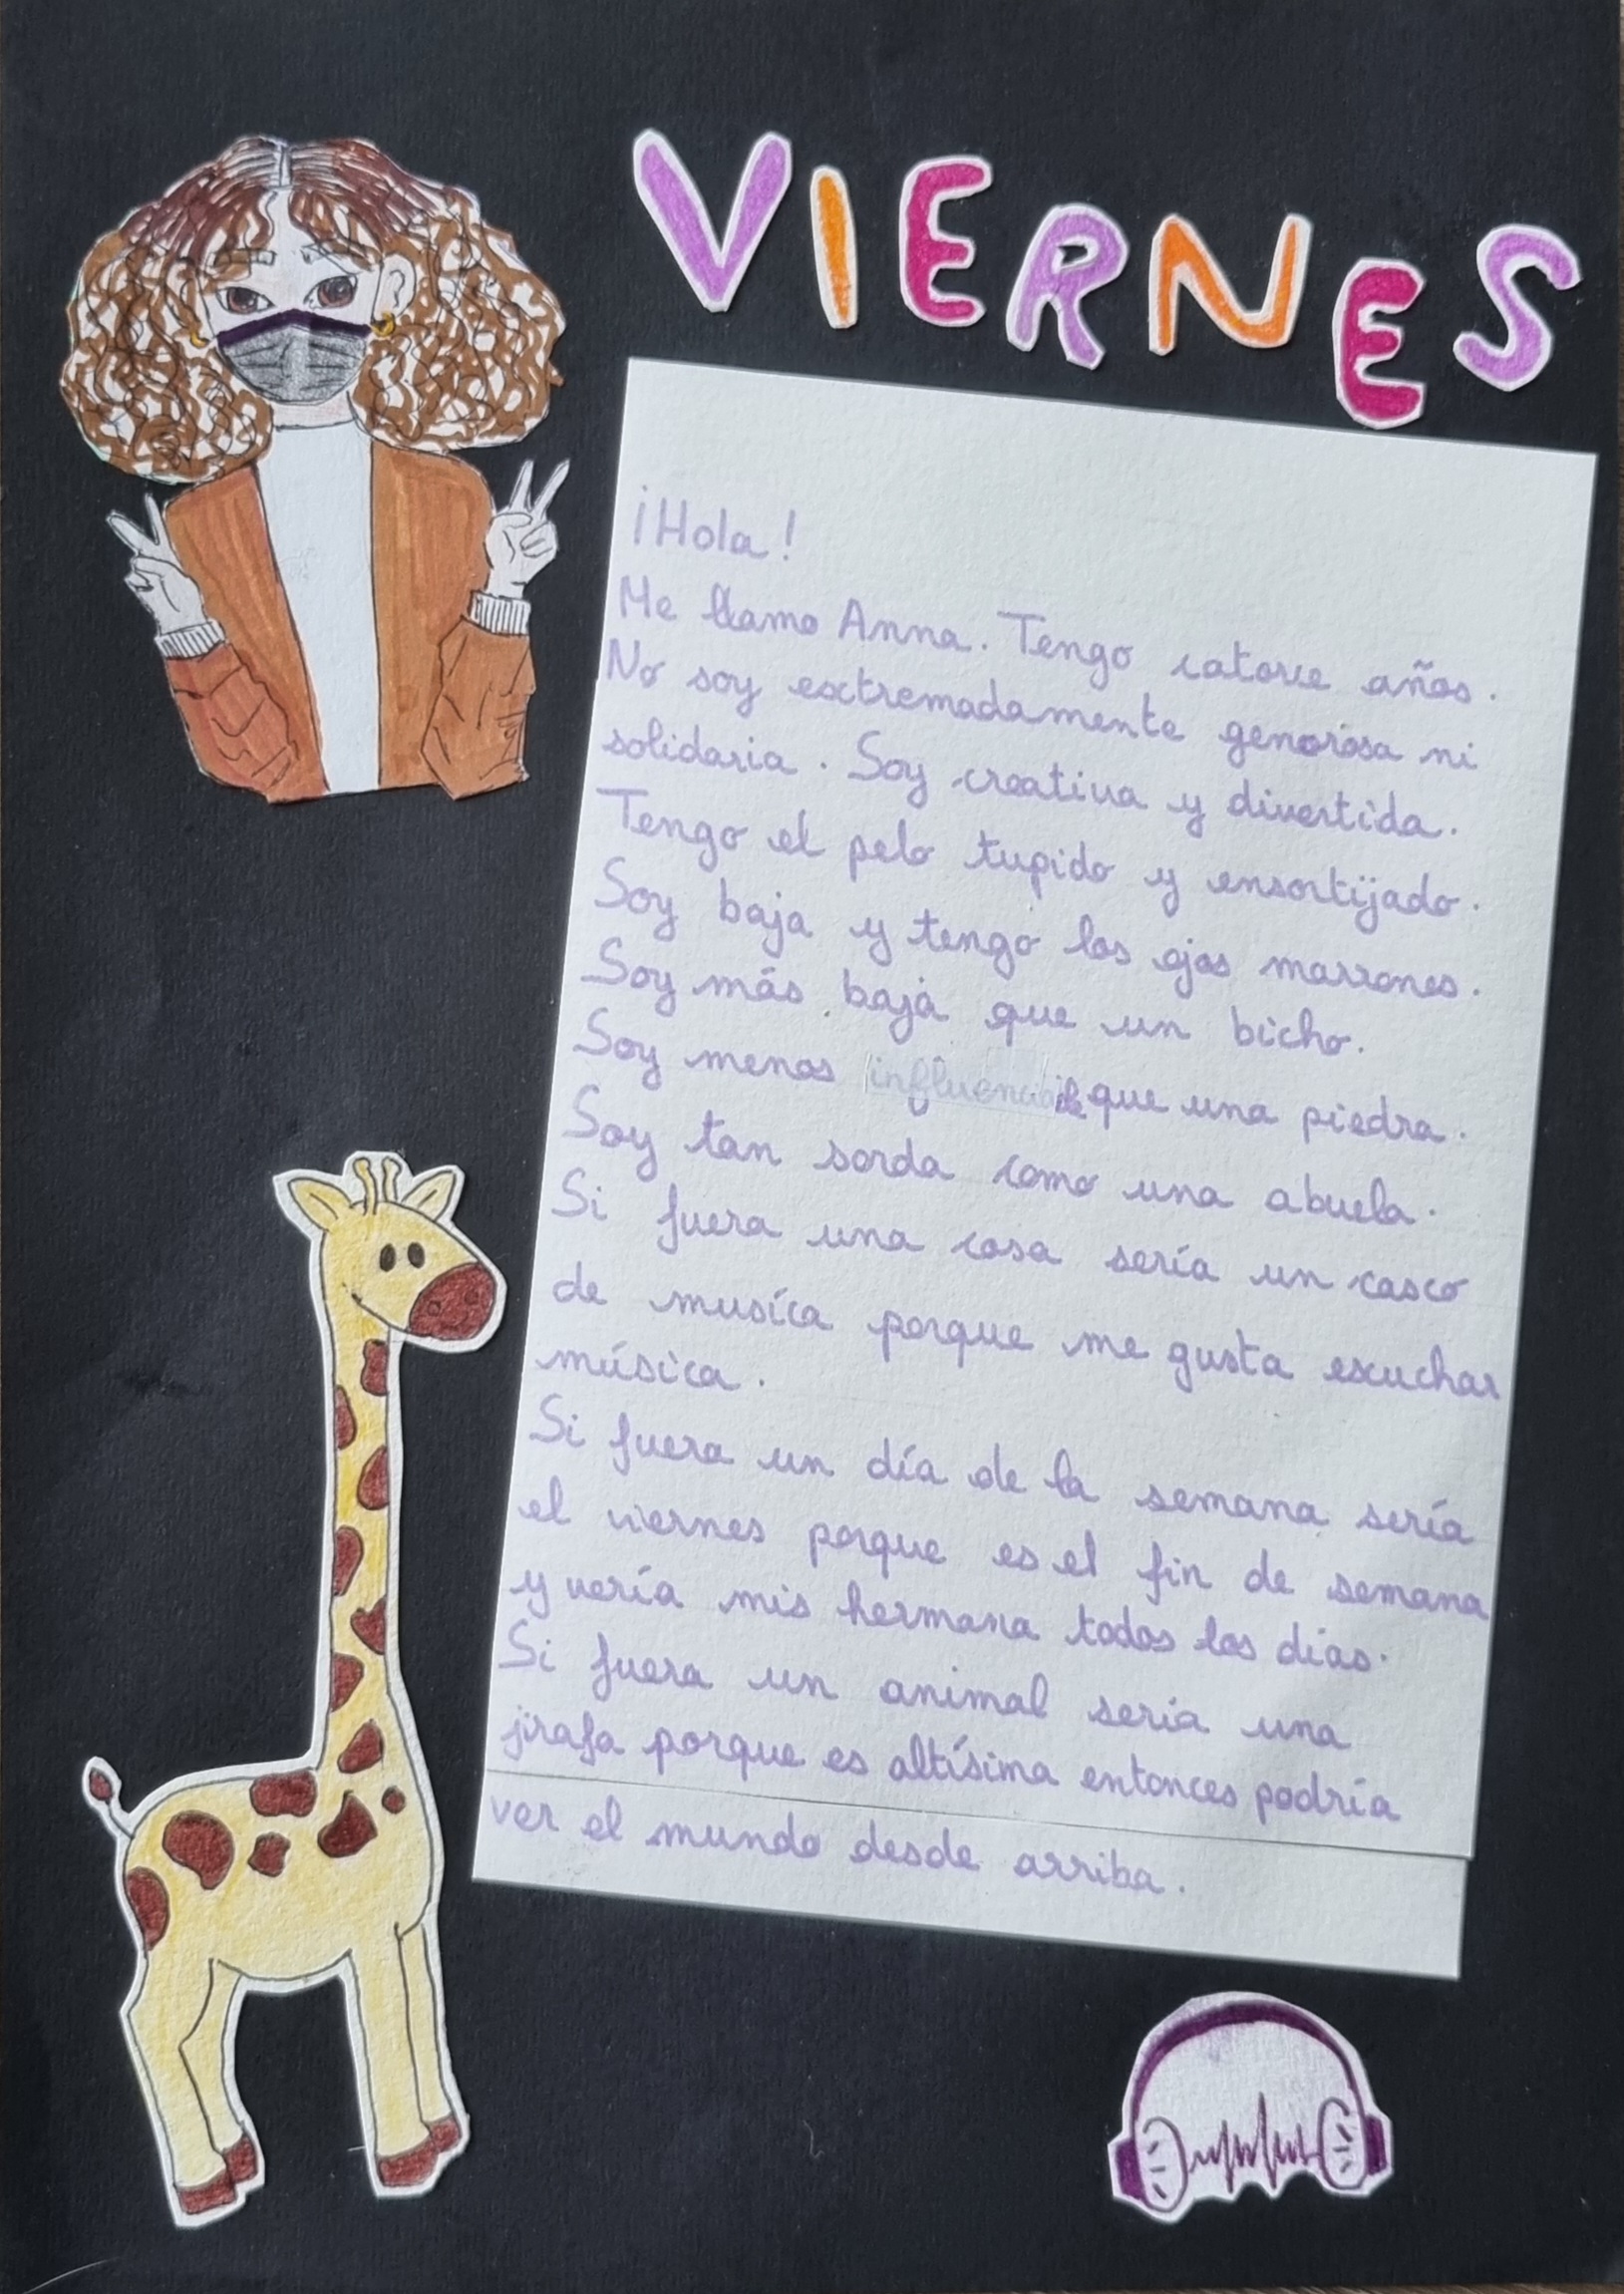 VIERNES
¡Hola!
Me llamo Anna. Tengo catorce años.
No soy extremadamente generosa ni
solidaria. Soy creativa y divertida.
Tengo el pelo tupido y ensortijado.
Soy baja y tengo los ojos marrones.
Soy más baja que un bicho.
Soy menos influenciable que una piedra.
Soy tan sorda como una abuela.
Si fuera una cosa sería un casco
de musíca porque me gusta escuchar
música.
Si fuera un día de la semana sería
el viernes porque es el fin de semana
y vería mis hermana todos los días.
Si fuera un animal sería una
jirafa porque es altísima entonces podría
ver el mundo desde arriba.